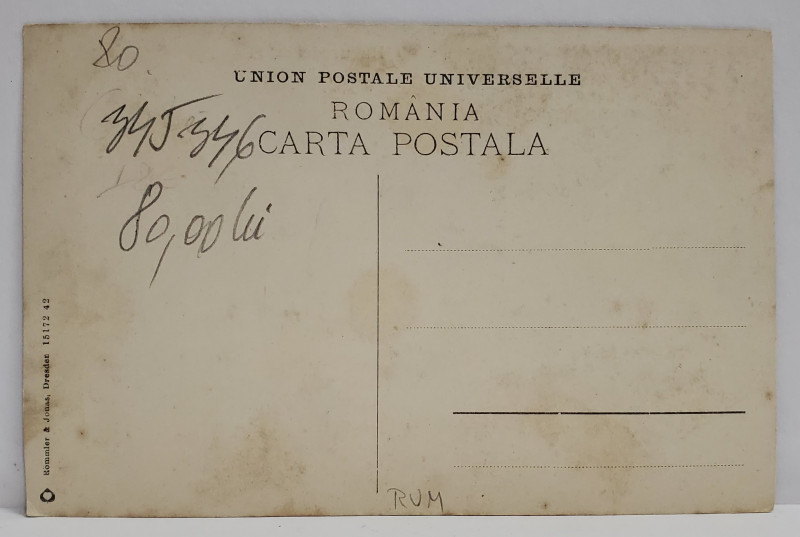 80
UNION POSTALE UNIVERSELLE
ROMÂNIA
345 346
CARTA POSTALA
80,00 lei
Rommler & Jonas, Dresden 15172 42
RUM